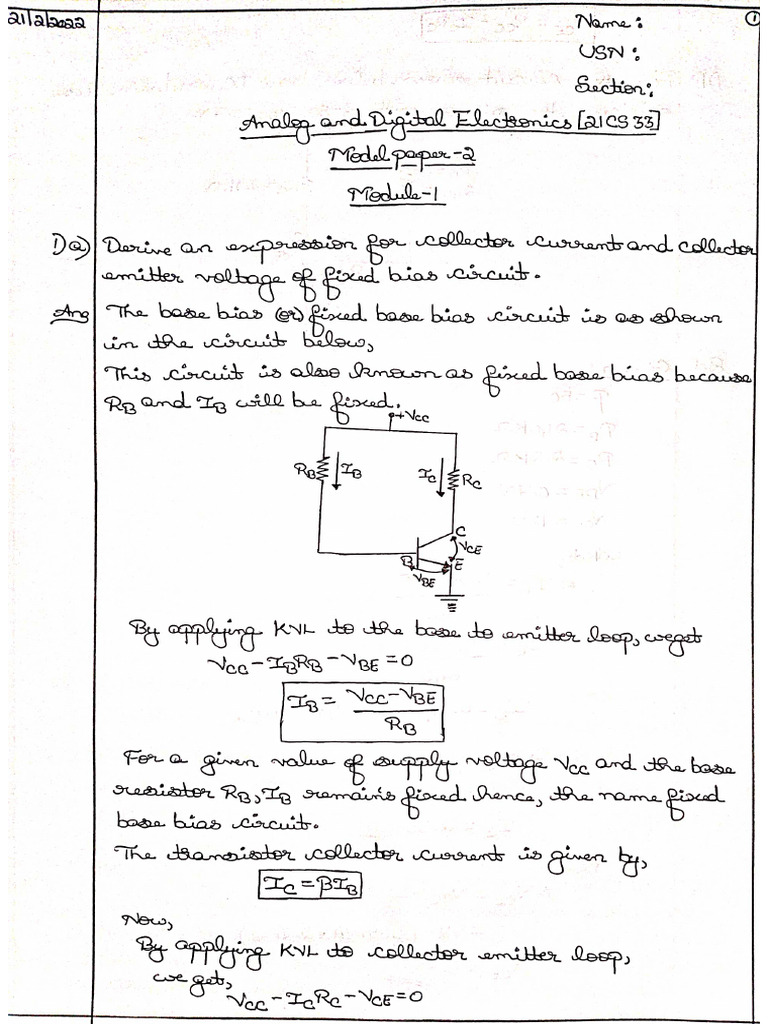 21/2/2022
Name:
①
USN:
Section:
Analog and Digital Electronics [21CS33]
Model paper-2
Module-1
1)a) Derive an expression for collector current and collector
emitter voltage of fixed bias circuit.
Ans The base bias (or) fixed base bias circuit is as shown
in the circuit below,
This circuit is also known as fixed base bias because
RB and IB will be fixed.
+VCC
RB IB IC RC
C
VCE
B E
VBE
By applying KVL to the base to emitter loop, we get
VCC-IBRB-VBE=0
IB = VCC-VBE
RB
For a given value of supply voltage VCC and the base
resistor RB, IB remains fixed hence, the name fixed
base bias circuit.
The transistor collector current is given by,
IC=βIB
Now,
By applying KVL to collector emitter loop,
we get,
VCC-ICRC-VCE=0